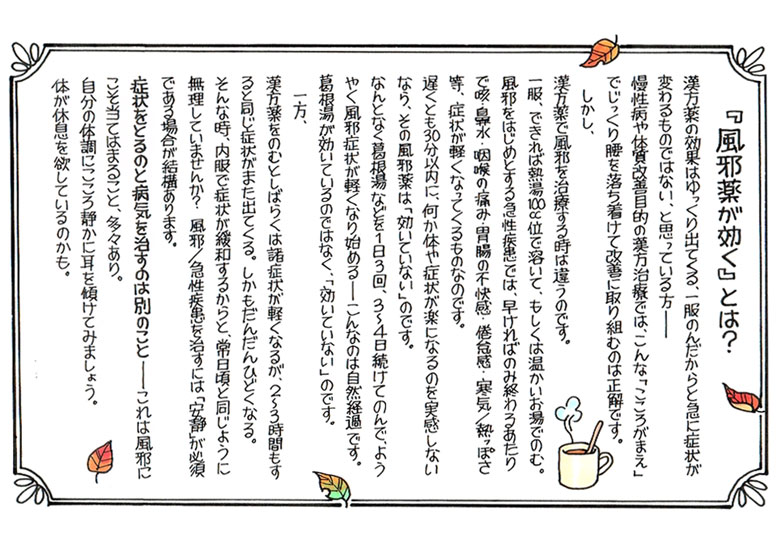 『風邪薬が効く』とは？
漢方薬の効果はゆっくり出てくる、一服のんだからと急に症状が
変わるものではない、と思っている方――
慢性病や体質改善目的の漢方治療では、こんな「こころがまえ」
でじっくり腰を落ち着けて改善に取り組むのは正解です。
しかし、
漢方薬で風邪を治療する時は違うのです。
一服、できれば熱湯100cc位で溶いて、もしくは温かいお湯でのむ。
風邪をはじめとする急性疾患では、早ければのみ終わるあたり
で咳・鼻水・咽喉の痛み・胃腸の不快感・倦怠感・寒気／熱っぽさ
等、症状が軽くなってくるものなのです。
遅くとも30分以内に、何か体や症状が楽になるのを実感しない
なら、その風邪薬は「効いていない」のです。
なんとなく葛根湯などを1日3回、3〜4日続けてのんで、よう
やく風邪症状が軽くなり始める――こんなのは自然経過です。
葛根湯が効いているのではなく、「効いていない」のです。
一方、
漢方薬をのむとしばらくは諸症状が軽くなるが、2〜3時間もす
ると同じ症状がまた出てくる。しかもだんだんひどくなる。
そんな時、内服で症状が緩和するからと、常日頃と同じように
無理していませんか？風邪／急性疾患を治すには「安静」が必須
である場合が結構あります。
症状をとるのと病気を治すのは別のこと――これは風邪に
こそ当てはまること、多々あり。
自分の体調にこころ静かに耳を傾けてみましょう。
体が休息を欲しているのかも。